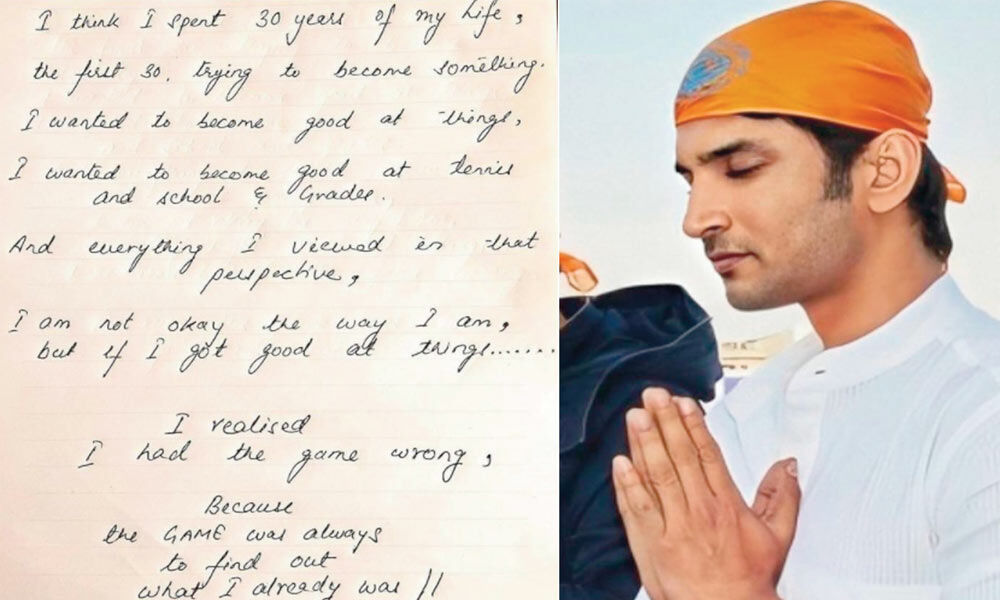 I think I spent 30 years of my life,
the first 30, trying to become something.
I wanted to become good at things,
I wanted to become good at tennis
and school & Grades.
And everything I viewed in that
perspective,
I am not okay the way I am,
but if I got good at things.......
I realised
I had the game wrong,
Because
the GAME was always
to find out
what I already was //